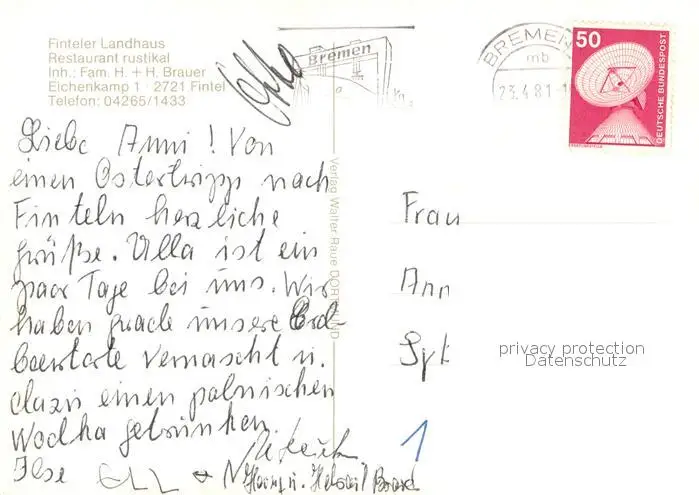 Finteler Landhaus
Restaurant rustikal
Inh.: Fam. H. + H. Brauer
Eichenkamp 1 · 2721 Fintel
Telefon: 04265/1433
Bremen
BREMEN
mb
23.4.81-1
50
DEUTSCHE BUNDESPOST
Liebe Anni! Von
einen Ostertripp nach
Finteln herzliche
grüße. Ulla ist ein
paar Tage bei uns. Wir
haben grade unsere Erd-
beertorte vernascht u.
dazu einen polnischen
Wodka getrunken.
Ilse
Verlag Walter Raue DORTMUND
Frau
Ann
Syk
privacy protection
Datenschutz
1